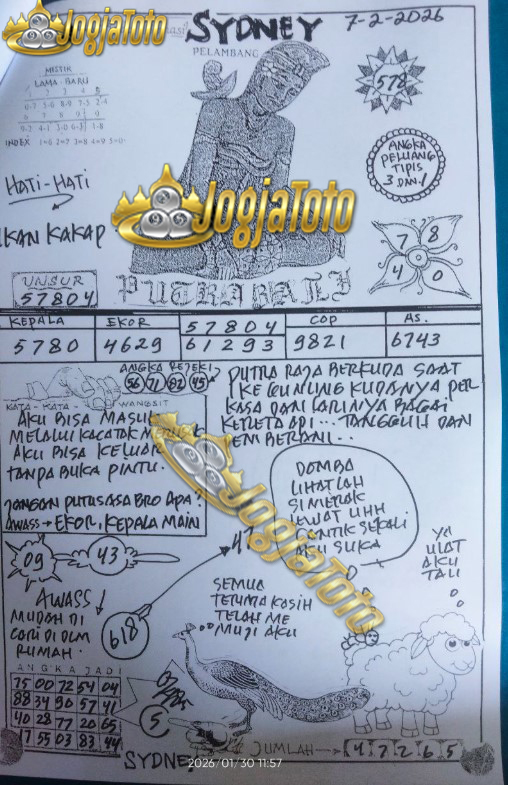 JOGJATOTO
SYDNEY
7-2-2026
PELAMBANG
MISTIK
LAMA - BARU
INDEX 1=6 2=7 3=8 4=9 5=0
578
ANGKA
PELUANG
TIPIS
3 DAN 1
HATI-HATI
IKAN KAKAP
JOGJATOTO
7 8
4 0
UNSUR
57804
PUTRA BALI
KEPALA EKOR 57804 COP AS.
5780 4629 61293 9821 6743
ANGKA REJEKI
56 71 82 45
KATA - KATA - WANGSIT
AKU BISA MASUK
MELALUI KACATAK
AKU BISA KELUAR
TANPA BUKA PINTU.
JANGAN PUTUS ASA BRO APA?
AWASS → EKOR, KEPALA MAIN
PUTRA RAJA BERKUDA SAAT
KE GUNUNG KUDANYA PER
KASA DAN LARINYA BAGAI
KERETA API... TANGGUH DAN
BERANI..
DOMBA
LIHATLAH
SI MERAK
LEWAT UHH
CANTIK SEKALI
AKU SUKA
JOGJATOTO
YA
ULAT
AKU
TAU
09
43
AWASS!
MUDAH DI
CARI DI DLM
RUMAH.
618
SEMUA
TERIMA KASIH
TELAH ME
MUJI AKU
ANGKA JADI
75 00 72 54 04
88 34 90 57 41
40 28 77 20 65
17 55 03 83 44
5
SYDNEY
JUMLAH → 4 7 2 6 5
2026/01/30 11:57